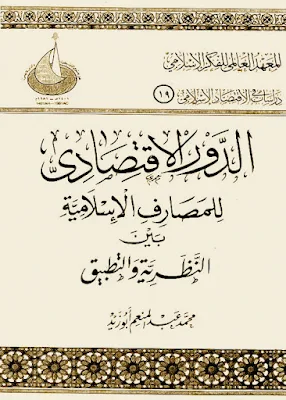 المعهد العالمي للفكر الإسلامي
دراسات في الاقتصاد الإسلامي (١٩)
الدَّوْرُ الاقْتِصَادِيُّ
لِلمَصَارِفِ الإِسْلَامِيَّةِ
بَيْنَ
النَّظَرِيَّةِ وَالتَّطْبِيقِ
محمد عبد المنعم أبو زيد